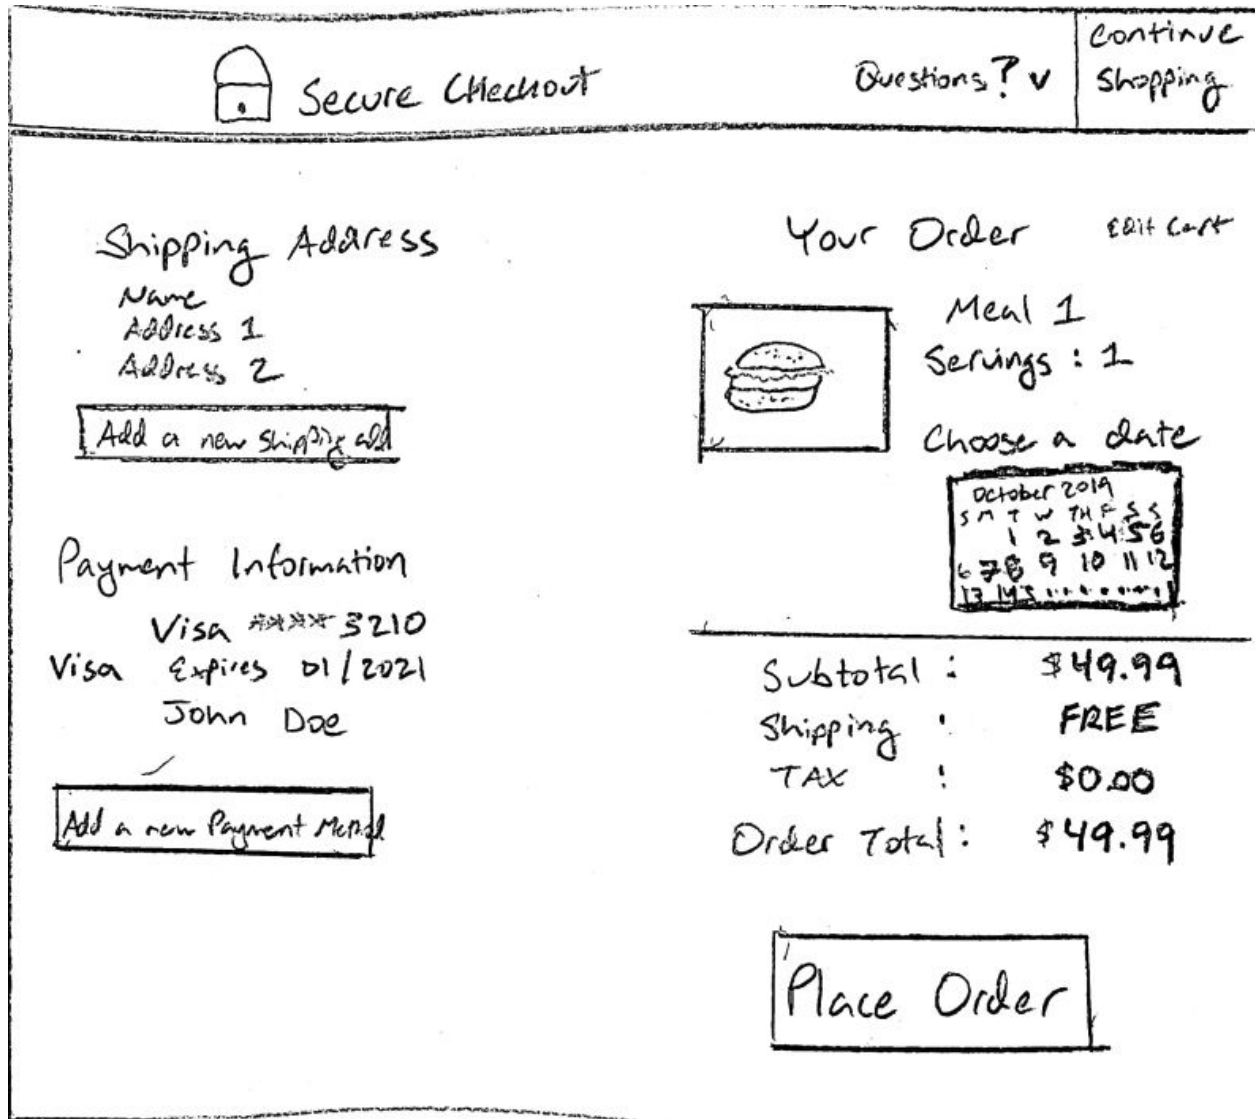 Secure CHeckout
Questions? v
Continue
Shopping
Shipping Address
Name
Address 1
Address 2
Add a new shipping add
Payment Information
Visa **** 3210
Visa Expires 01/2021
John Doe
Add a new Payment Method
Your Order
Edit Cart
Meal 1
Servings : 1
Choose a date
October 2019
S M T W TH F S S
1 2 3 4 5 6
6 7 8 9 10 11 12
13 14
Subtotal : $49.99
Shipping : FREE
TAX : $0.00
Order Total : $49.99
Place Order